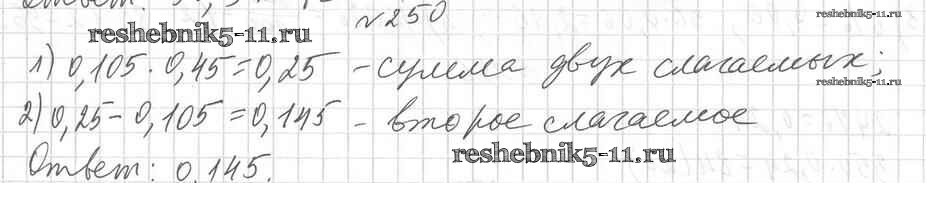 №250
reshebnik5-11.ru
reshebnik5-11.ru
1) 0,105 · 0,45 = 0,25 - сумма двух слагаемых;
reshebnik5-11.ru
2) 0,25 - 0,105 = 0,145 - второе слагаемое
reshebnik5-11.ru
Ответ: 0,145.